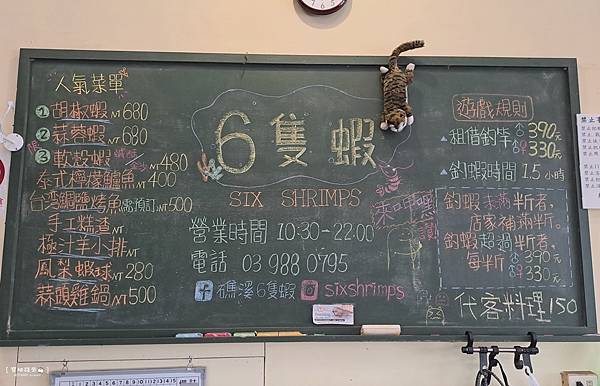 人氣菜單
1 胡椒蝦 NT 680
2 蒜蓉蝦 NT 680
3 軟殼蝦 NT 480
泰式檸檬鱸魚 NT 400
台灣鯛鹽烤魚 需預訂 NT 500
手工糕渣 NT
極汁羊小排 NT
鳳梨蝦球 NT 280
蒜頭雞鍋 NT 500
6隻蝦
SIX SHRIMPS
營業時間 10:30-22:00
電話 03 988 0795
礁溪6隻蝦 sixshrimps
遊戲規則
租借釣竿 ♂390元
♀330元
釣蝦時間 1.5小時
釣蝦未滿半斤者,
店家補滿半斤。
釣蝦超過半斤者,
每半斤 ♂390元
♀330元
代客料理150